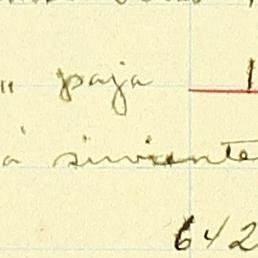 " paja 1
á sirviente
642